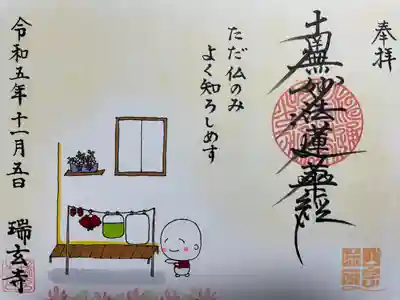 奉拝
南無妙法蓮華経
ただ仏のみ
よく知ろしめす
令和五年十一月五日
瑞玄寺